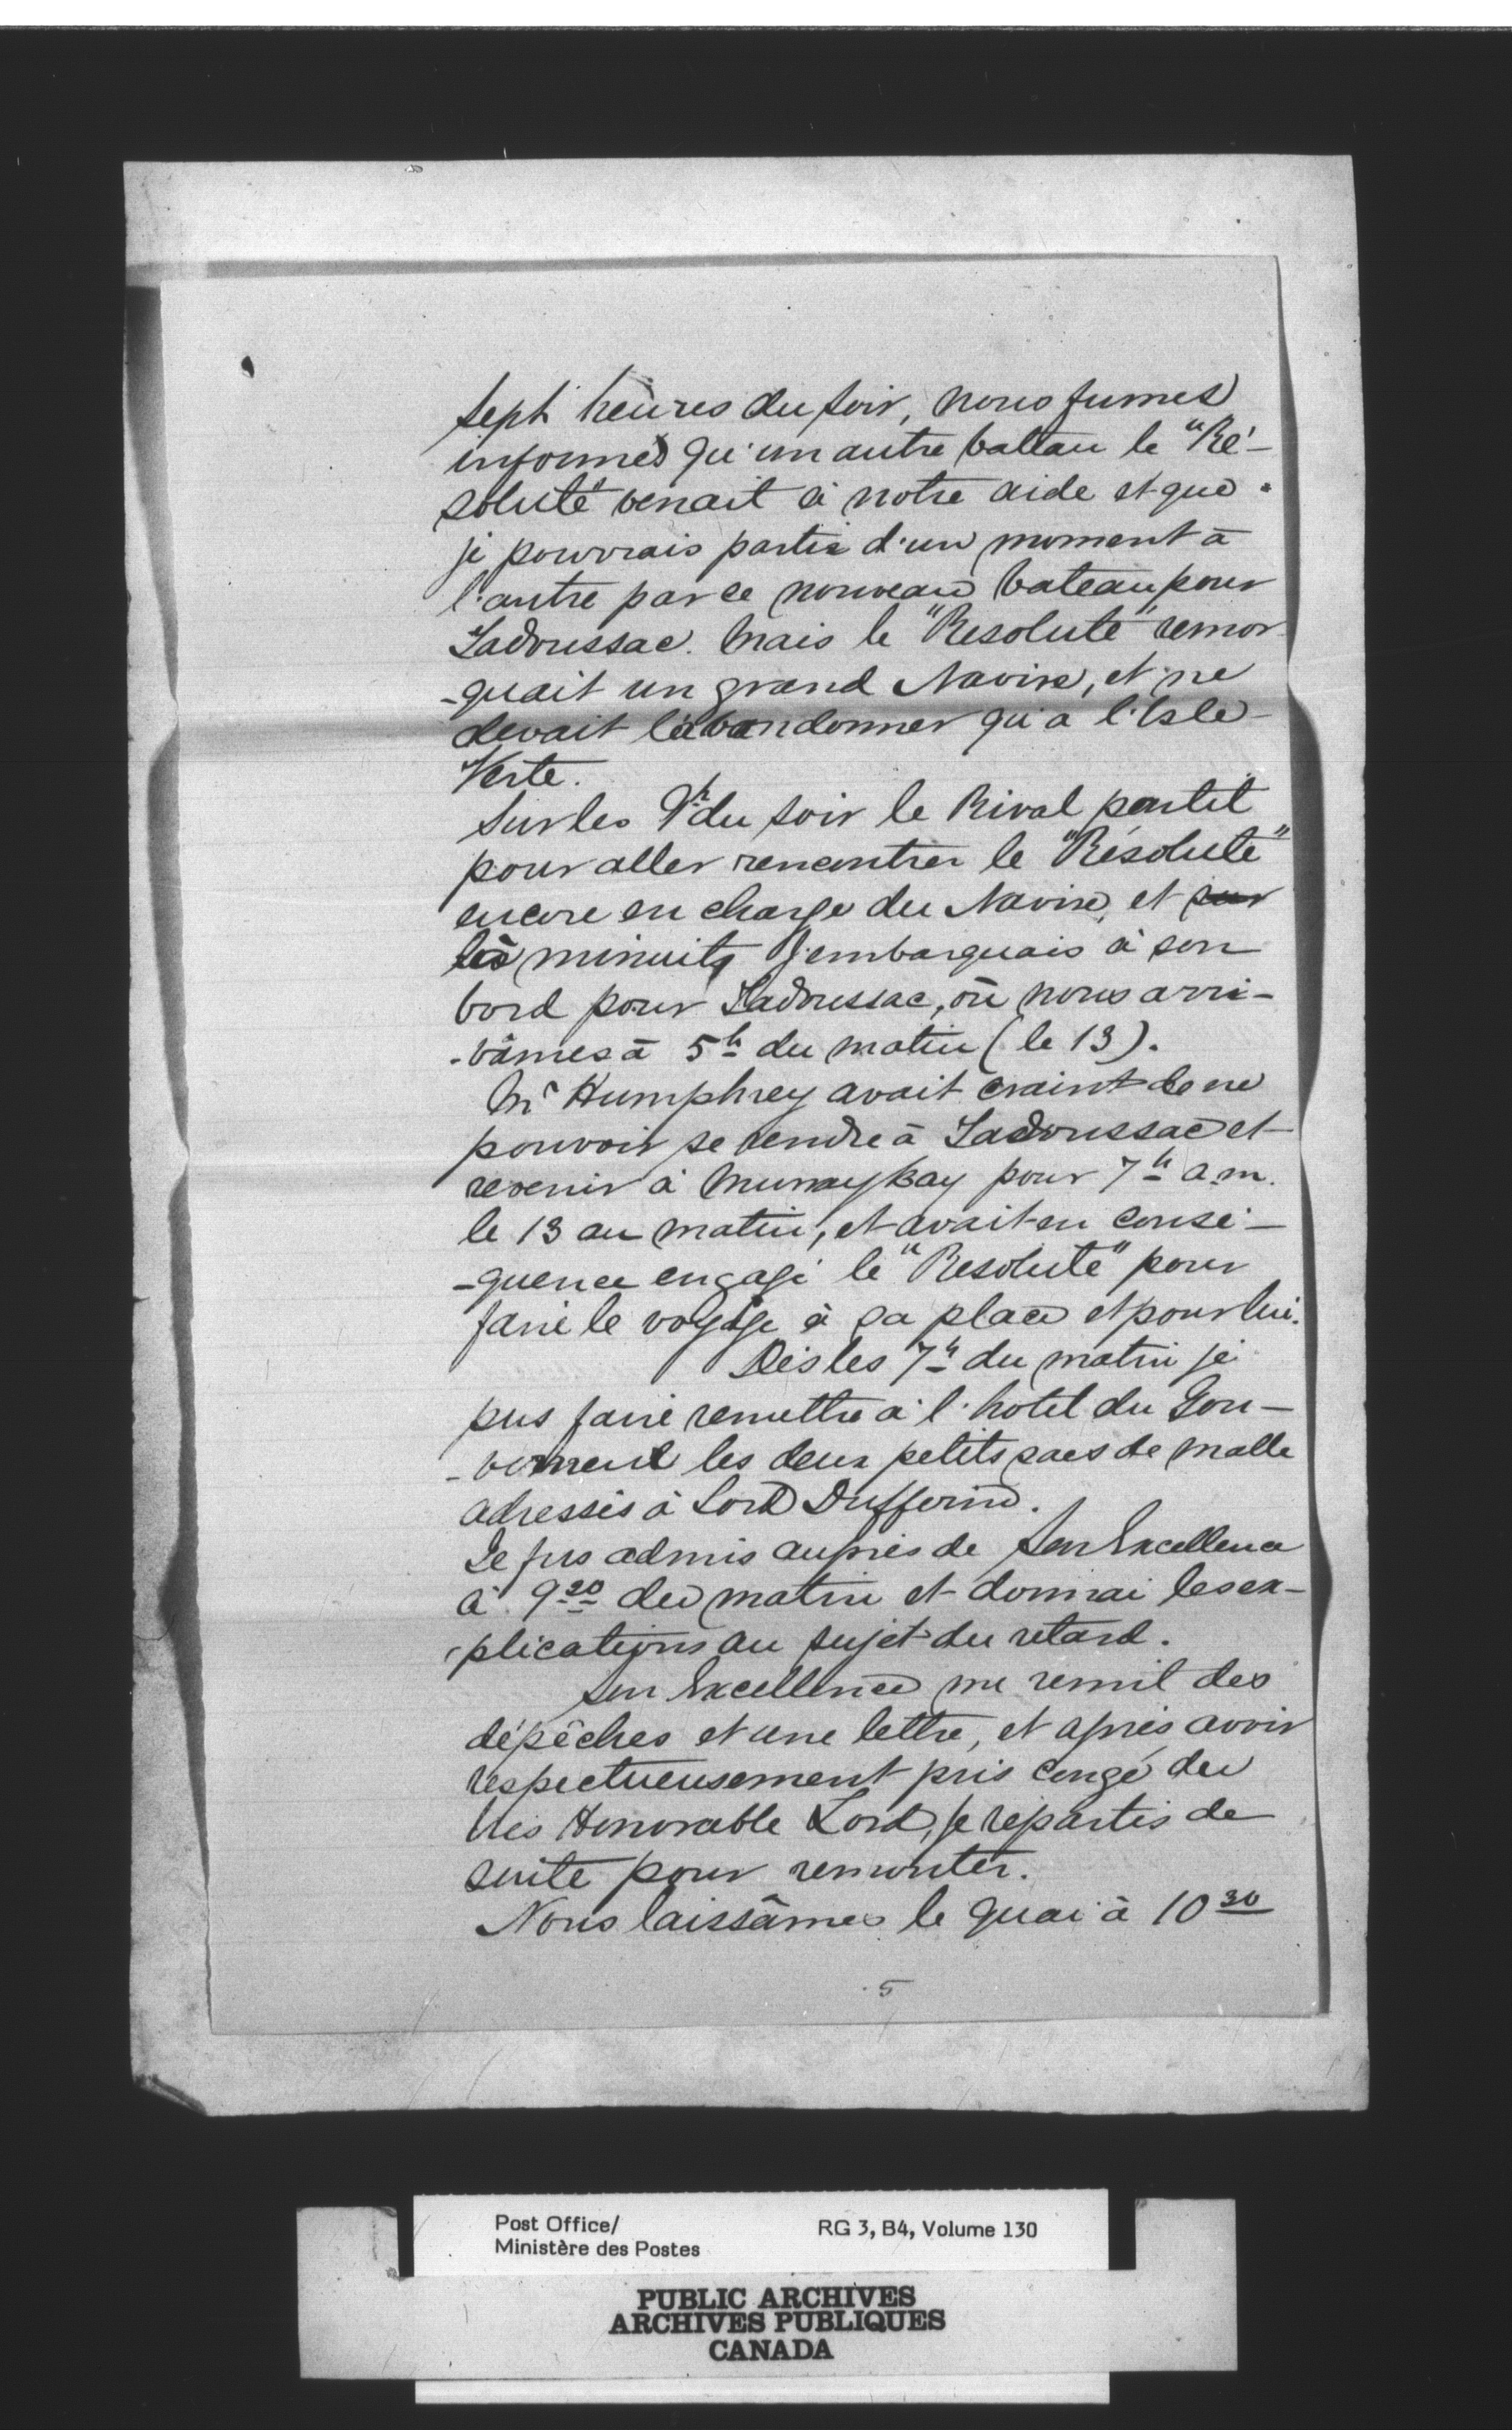 sept heures du soir, nous fumes
informés qu'un autre batteau le "Ré-
solute" venait à notre aide et que
je pourrais partir d'un moment à
l'autre par ce nouveau bateau pour
Tadoussac. Mais le "Resolute" remor
-quait un grand Navire, et ne
devait l'abandonner qu'à l'Isle-
Verte.
Sur les 9h du soir le Rival partit
pour aller rencontrer le "Résolute"
encore en charge du Navire, et sur
les minuits j'embarquais à son
bord pour Tadoussac, où nous arri-
-vâmes à 5h du matin (le 13).
Mr Humphrey avait craint de ne
pouvoir se rendre à Tadoussac et
revenir à Murray Bay pour 7h a.m.
le 13 au matin, et avait en consé-
-quence engagé le "Resolute" pour
faire le voyage à sa place et pour lui.
Dès les 7h du matin je
pus faire remettre à l'hotel du Gou-
-verneur les deux petits sacs de malle
adressés à Lord Dufferin.
Je fus admis auprès de Son Excellence
à 9 30 du matin et donnai les ex-
plications au sujet du retard.
Son Excellence me remit des
dépêches et une lettre, et après avoir
respectueusement pris congé du
très Honorable Lord, je repartis de
suite pour remonter.
Nous laissâmes le quai à 10 30
5
Post Office/
Ministère des Postes
RG 3, B4, Volume 130
PUBLIC ARCHIVES
ARCHIVES PUBLIQUES
CANADA